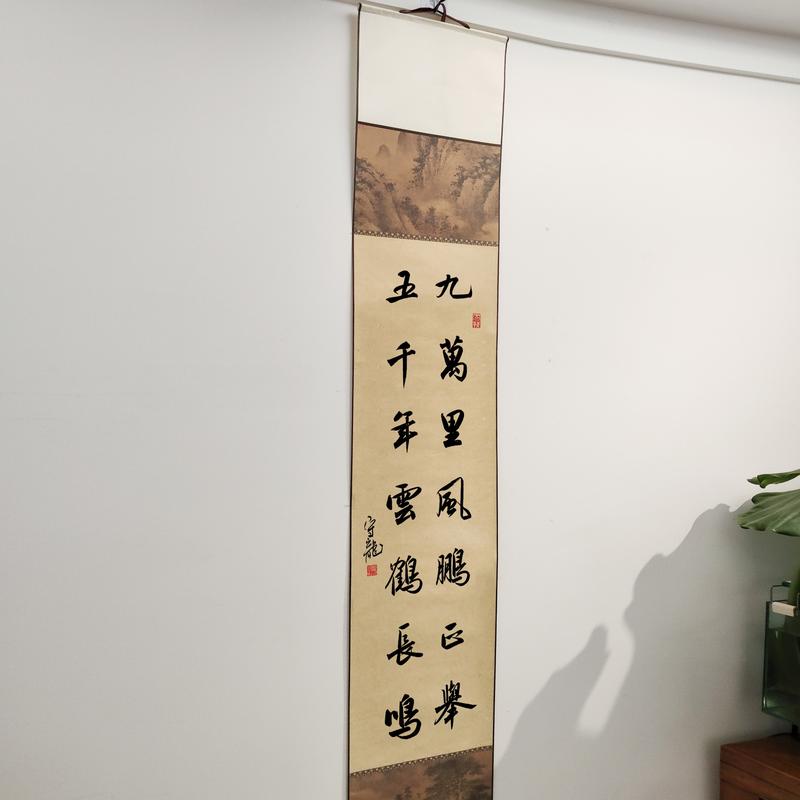 九萬里風鵬正舉
五千年雲鶴長鳴
守龍